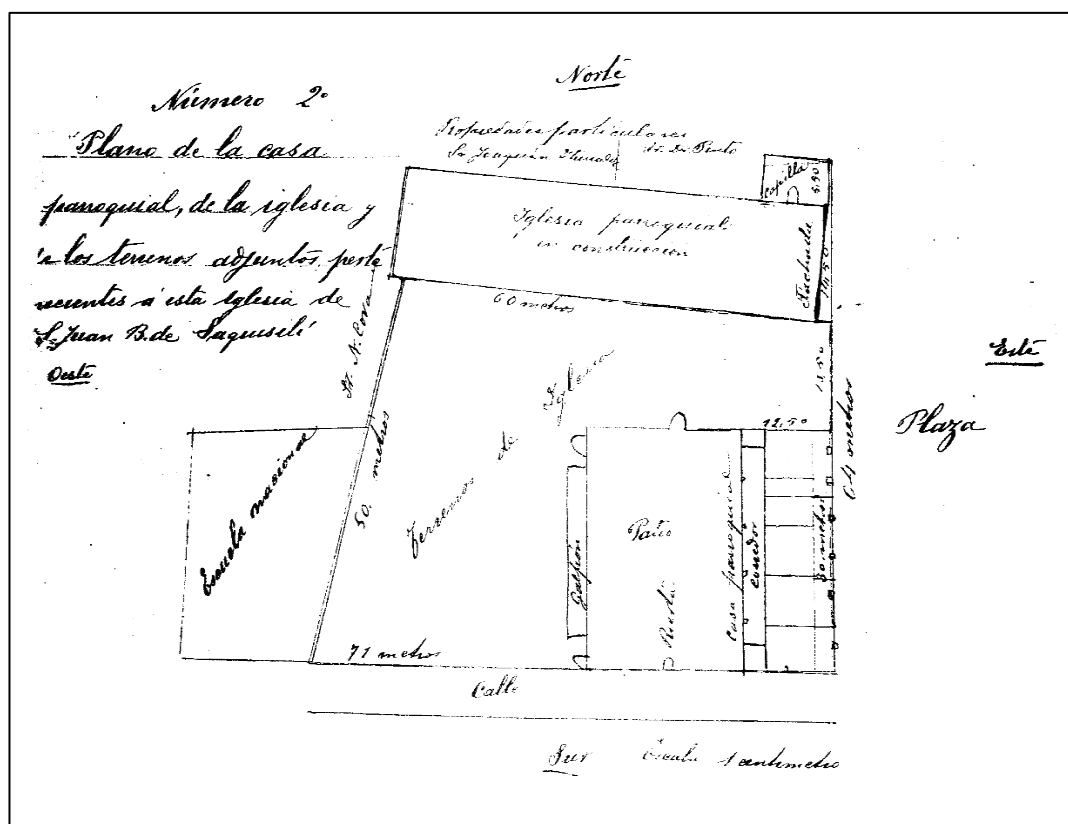 Norte
Número 2º
Plano de la casa
parroquial, de la iglesia y
los terrenos adjuntos perte
necientes á esta iglesia de
S. Juan B. de Saquisilí
Oeste
Propiedades particulares
Sr. Joaquín
Sr. Dr. Pinto
Capilla
5.50
Iglesia parroquial
en construccion
Fachada
14.50
60 metros
Sr. N. Cova
Este
Plaza
13.50
64 metros
12.50
Escuela nacional
50 metros
Terrenos de la Iglesia
Galpón
Patio
Casa parroquial
corredor
30 metros
71 metros
Calle
Sur
Escala 1 centimetro